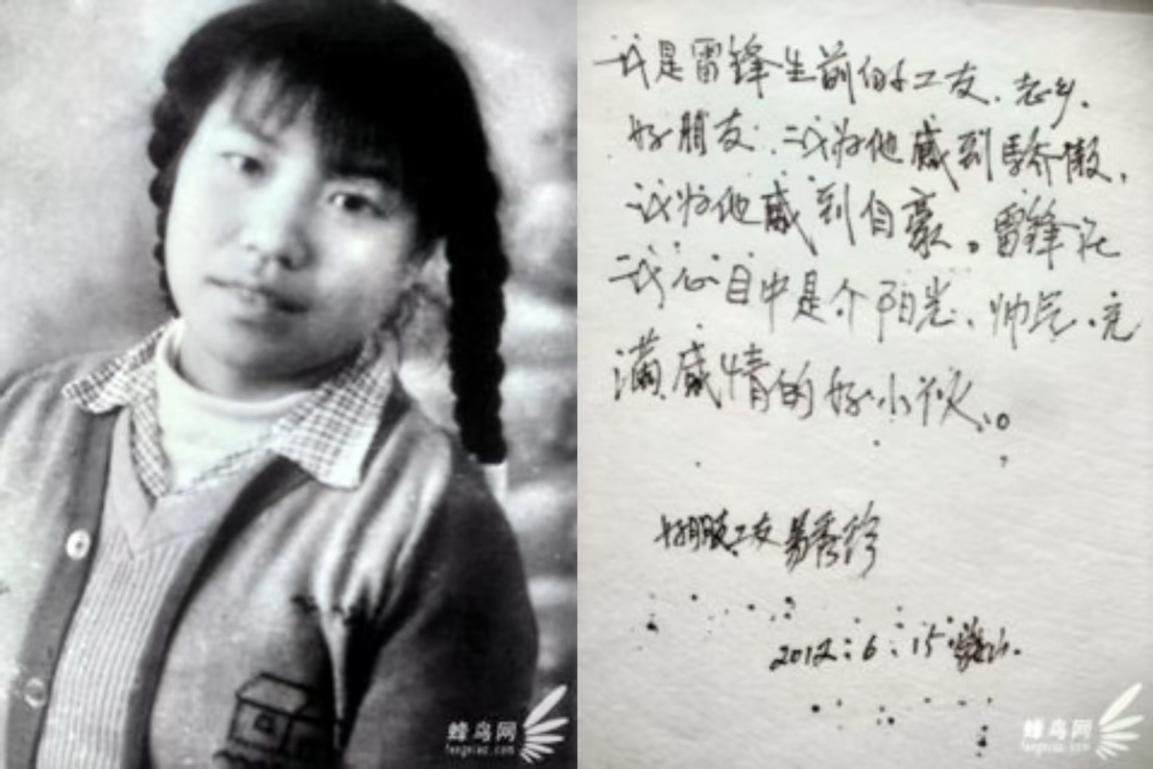 我是雷锋生前的好工友、老乡、
好朋友。我为他感到骄傲,
我为他感到自豪。雷锋在
我心目中是个阳光、帅气、充
满感情的好小伙、。
好朋友、工友易秀珍
2012:6:15
蜂鸟网
fengniao.com
蜂鸟网
fengniao.com